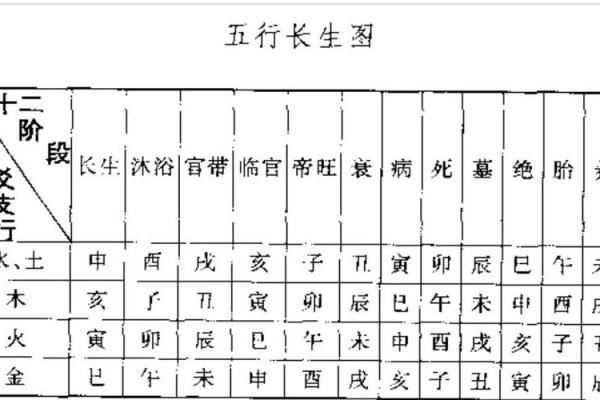 五行长生图
十二
阶
段
爻
支
行
长生 沐浴 官带 临官 帝旺 衰 病 死 墓 绝 胎
水、土 申 酉 戌 亥 子 丑 寅 卯 辰 巳 午 未
木 亥 子 丑 寅 卯 辰 巳 午 未 申 酉
火 寅 卯 辰 巳 午 未 申 酉 戌 亥 子
金 巳 午 未 申 酉 戌 亥 子 丑 寅 卯